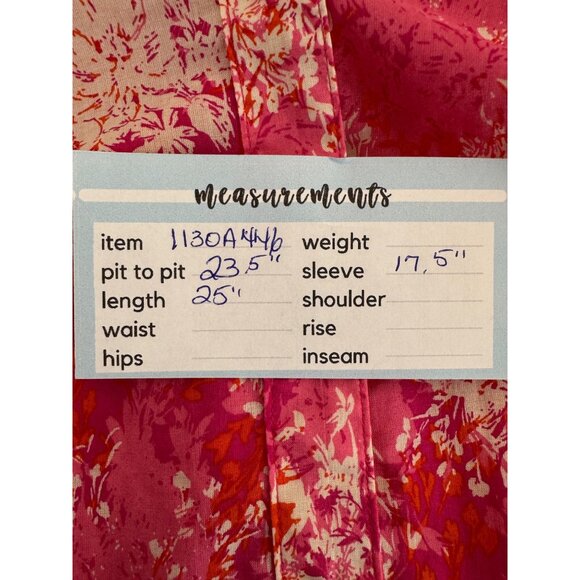 measurements
item 1130A446 weight
pit to pit 23.5" sleeve 17.5"
length 25" shoulder
waist rise
hips inseam